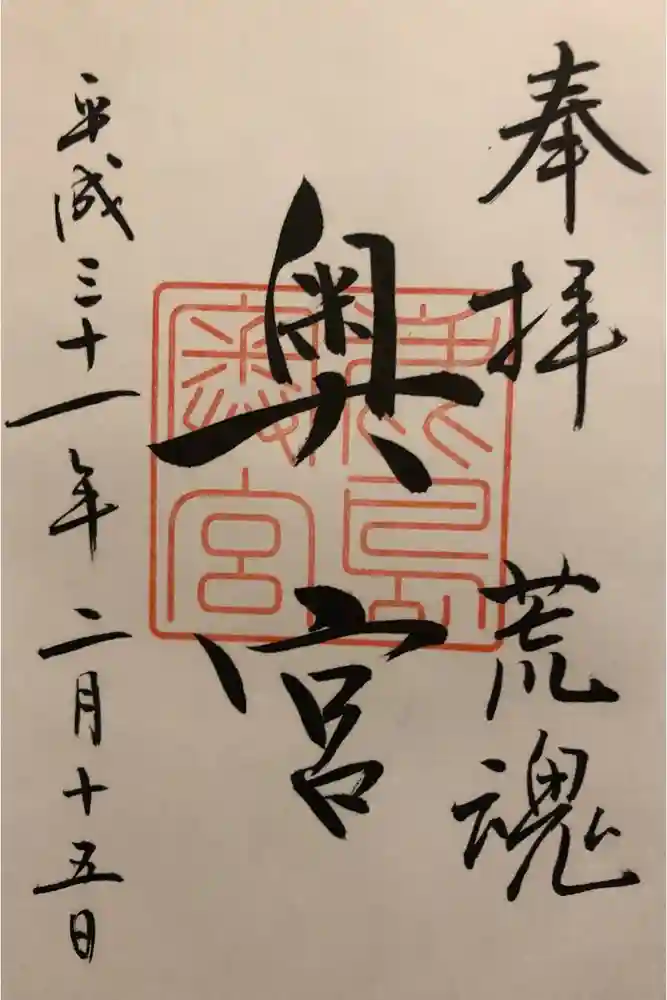 奉拝 荒魂
奥宮
鹿島奥宮
平成三十一年二月十五日